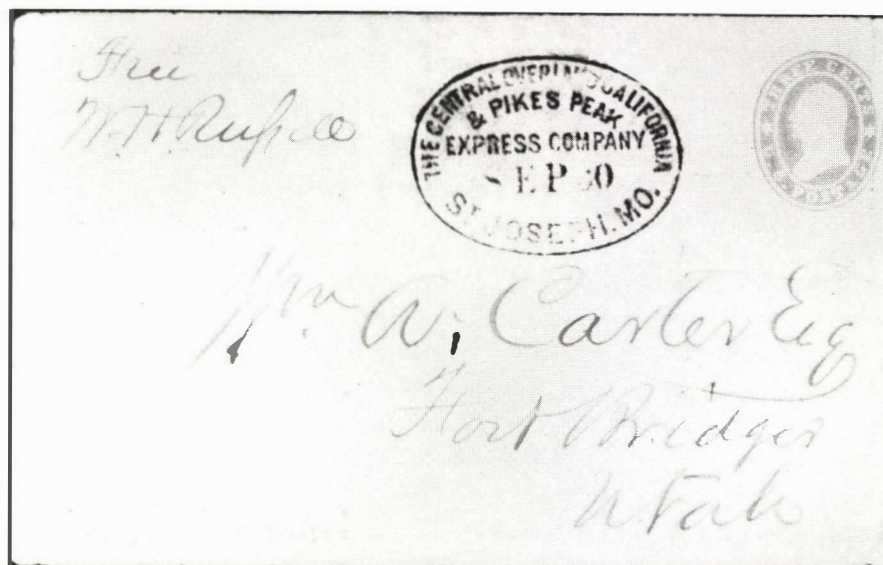 Free
W. H. Russell
THE CENTRAL OVERLAND CALIFORNIA
& PIKES PEAK
EXPRESS COMPANY
SEP 30
ST JOSEPH. MO.
Wm A. Carter Esq
Fort Bridger
Utah